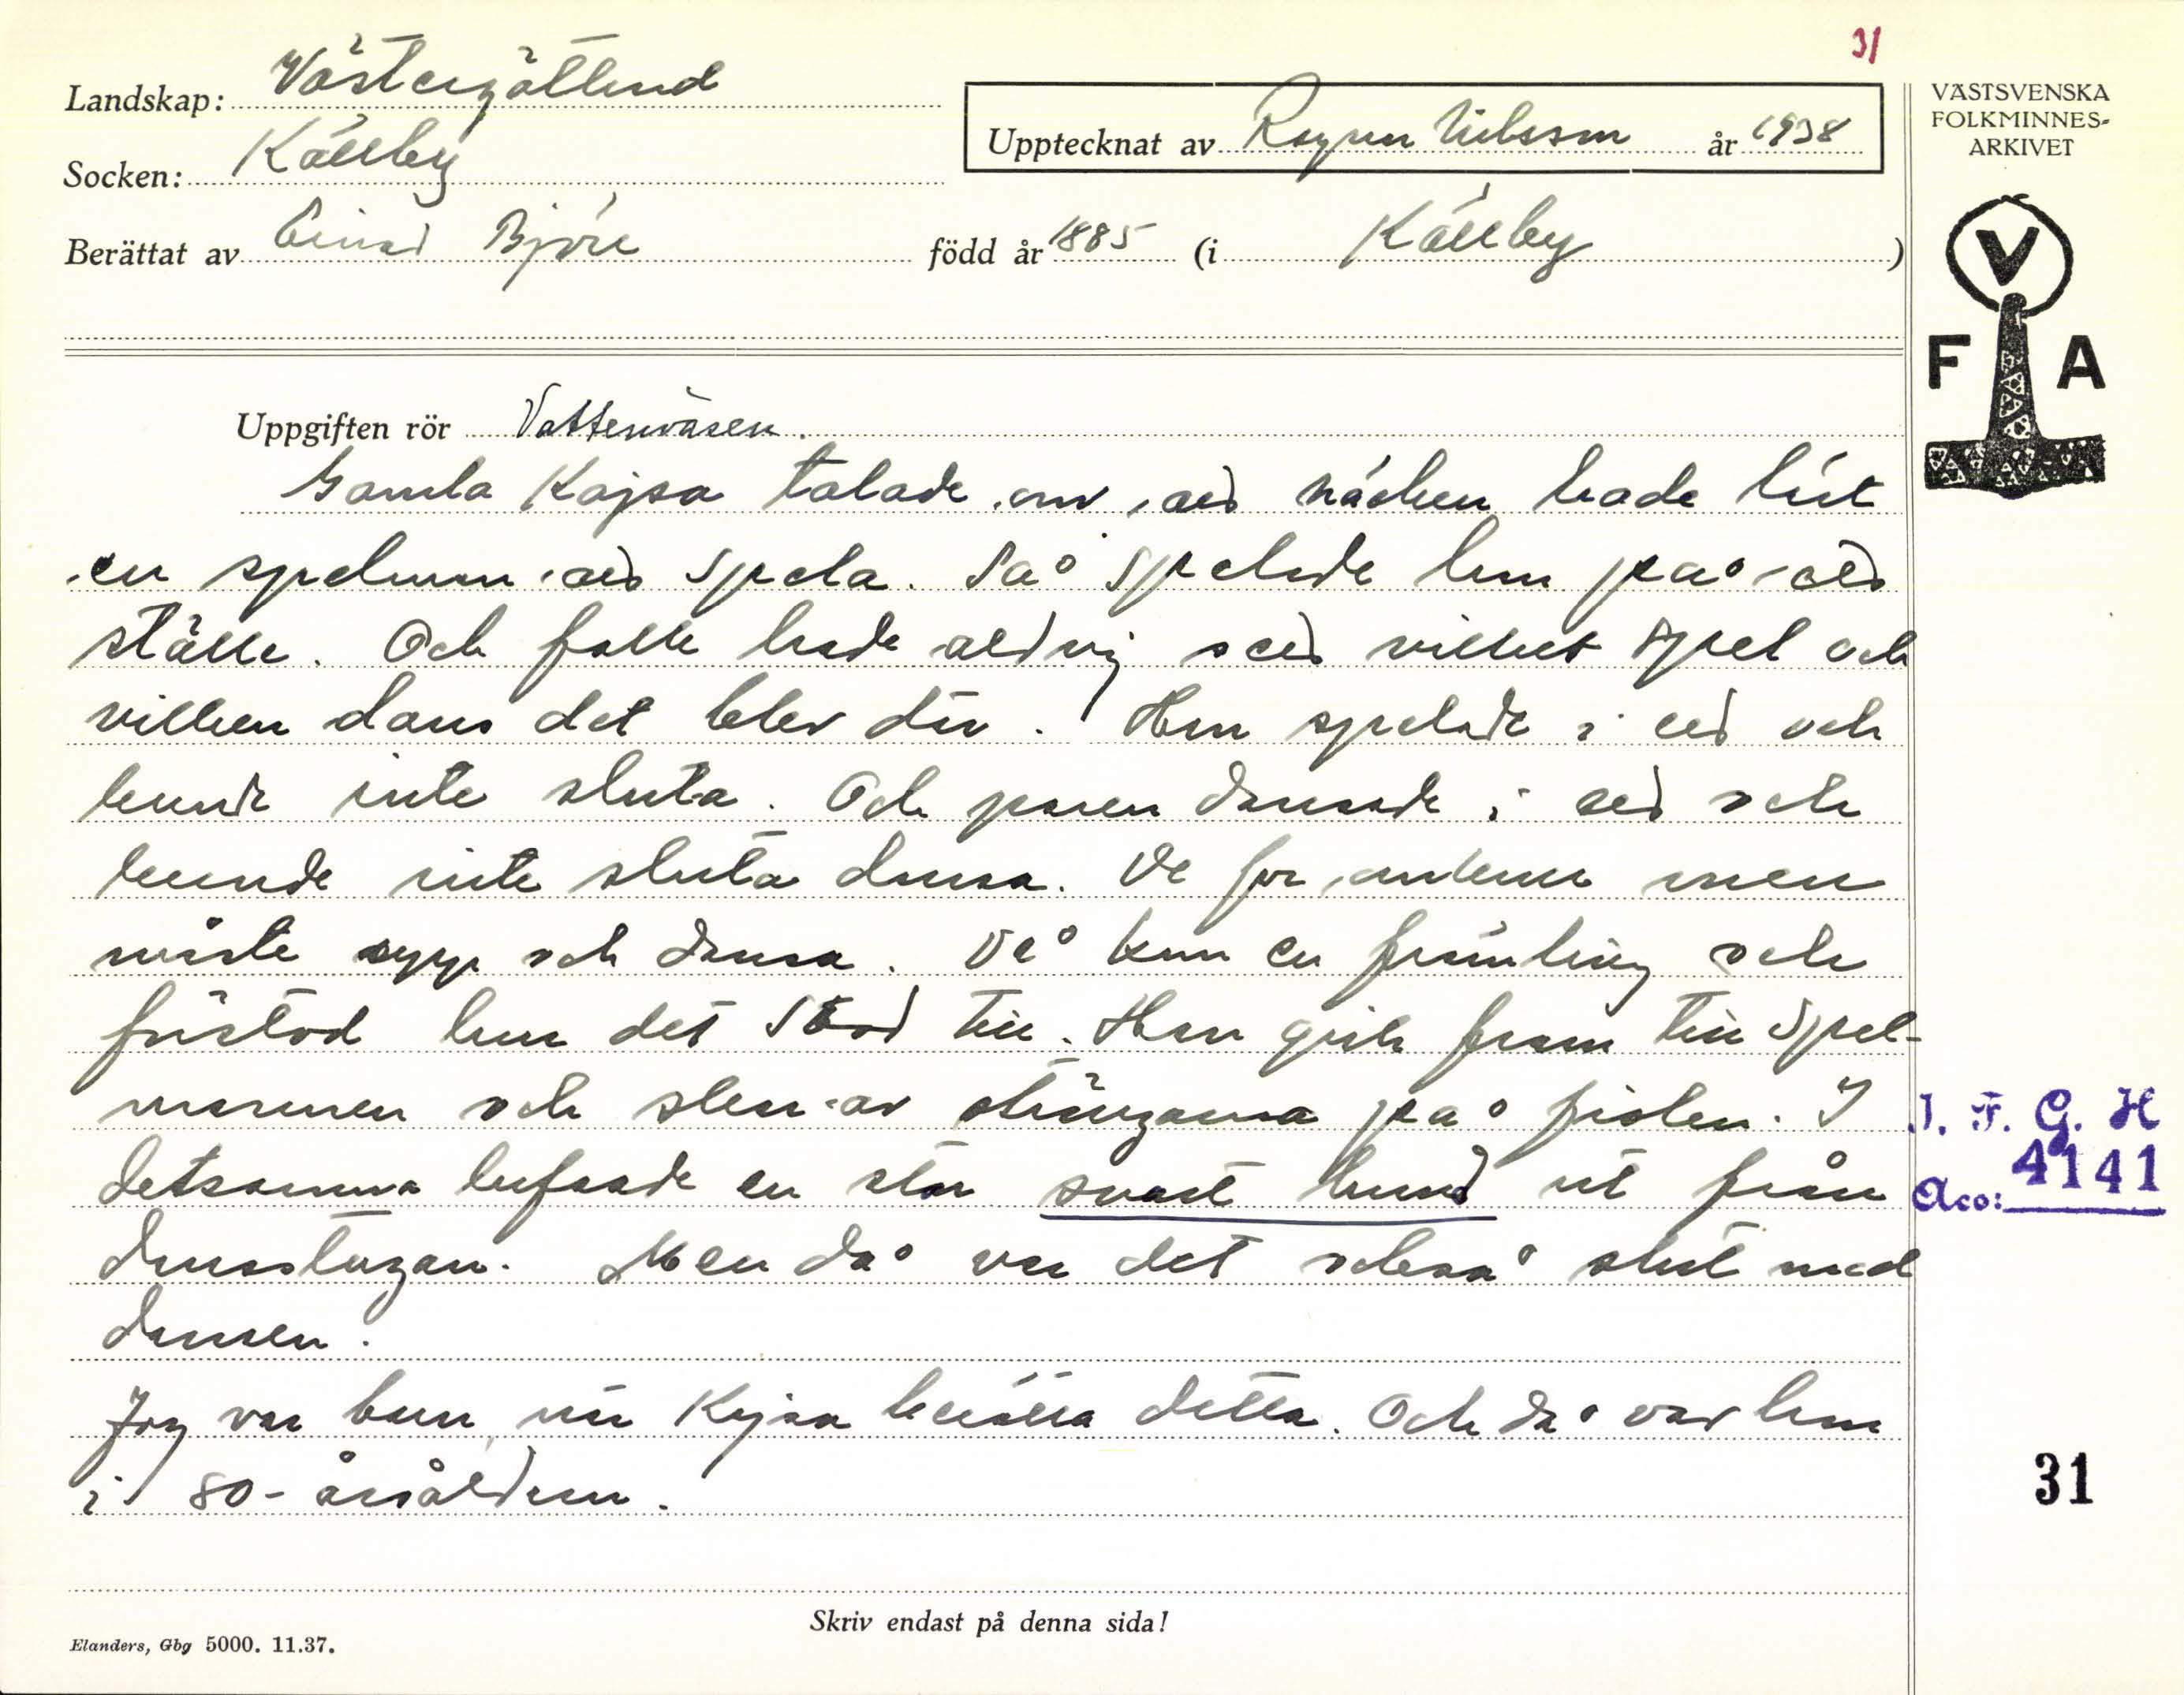 31
Landskap: Västergötland
Socken: Källby
Upptecknat av Ragnar Nilsson år 1938
Berättat av Einar Björk född år 1885 (i Källby)
VÄSTSVENSKA
FOLKMINNES-
ARKIVET
V
F A
Uppgiften rör Vattenväsen.
Gamla Kajsa talade om, att näcken hade lärt
en spelman att spela. Så spelade han på ett
ställe. Och folk hade aldrig sett vilket spel och
vilken dans det blev där. Han spelade i ett och
kunde inte sluta. Och paren dansade i ett och
kunde inte sluta dansa. De for omkull men
måste upp och dansa. Då kom en främling och
förstod hur det stod till. Han gick fram till spel-
mannen och skar av strängarna på fiolen. I
detsamma lufsade en stor svart hund ut från
dansstugan. Men då var det också slut med
dansen.
Jag var barn, när Kajsa berätta detta. Och då var hon
i 80-årsåldern.
I. F. G. H
Acc: 4141
31
Skriv endast på denna sida!
Elanders, Gbg 5000. 11.37.